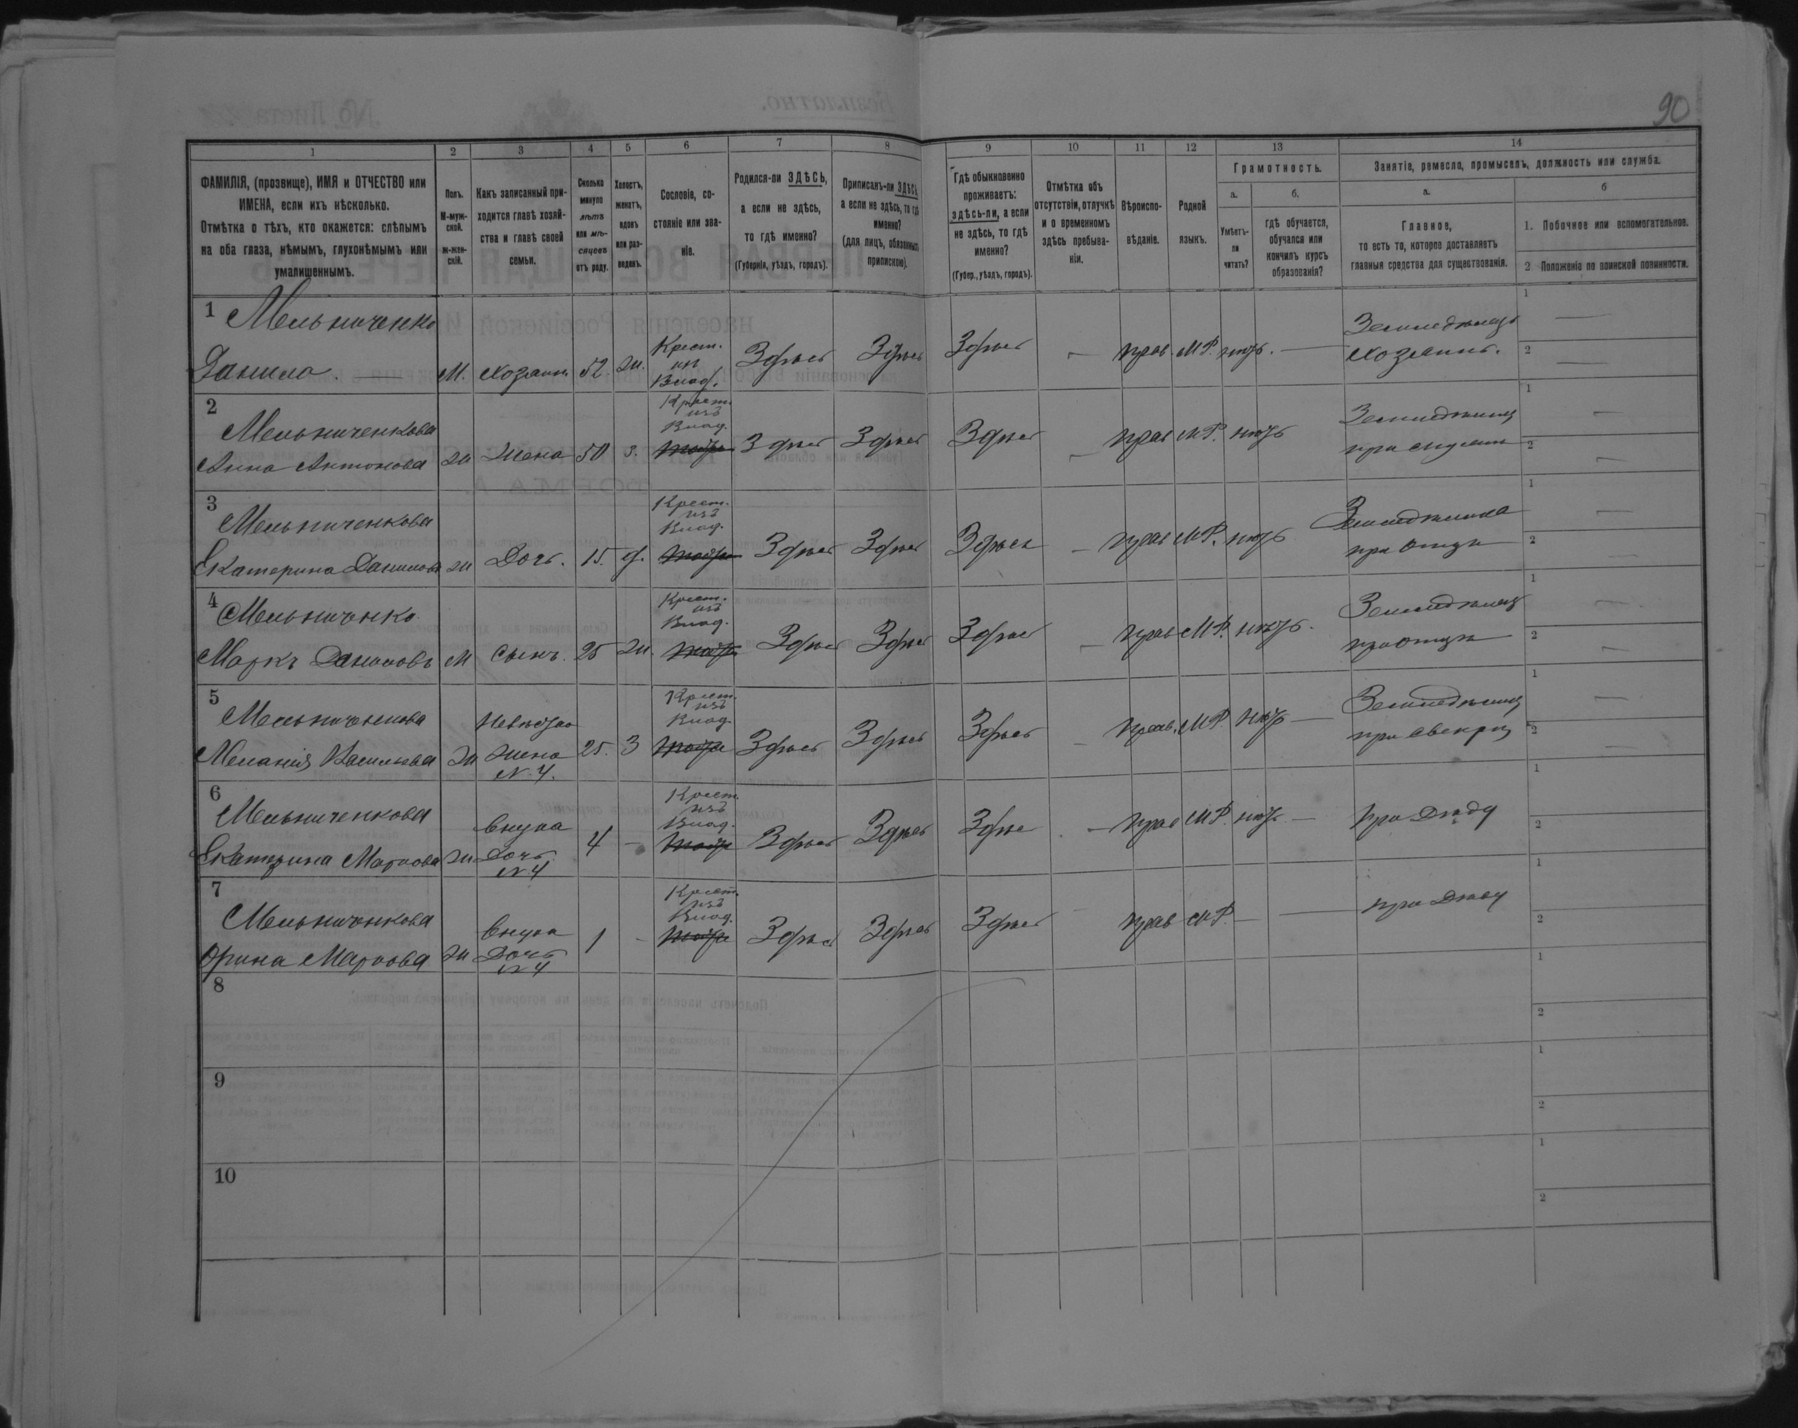 90
1 2 3 4 5 6 7 8 9 10 11 12 13 14
ФАМИЛІЯ, (прозвище), ИМЯ и ОТЧЕСТВО или ИМЕНА, если ихъ нѣсколько.
Отмѣтка о тѣхъ, кто окажется: слѣпымъ на оба глаза, нѣмымъ, глухонѣмымъ или умалишеннымъ.
Полъ.
М-мужской.
Ж-женскій.
Какъ записанный приходится главѣ хозяйства и главѣ своей семьи.
Сколько минуло лѣтъ или мѣсяцевъ отъ роду.
Холостъ, женатъ, вдовъ или разведенъ.
Сословіе, состояніе или званіе.
Родился-ли ЗДѢСЬ, а если не здѣсь, то гдѣ именно?
(Губернія, уѣздъ, городъ).
Приписанъ-ли ЗДѢСЬ, а если не здѣсь, то гдѣ именно?
(для лицъ, обязанныхъ припискою).
Гдѣ обыкновенно проживаетъ: здѣсь-ли, а если не здѣсь, то гдѣ именно?
(Губер., уѣздъ, городъ).
Отмѣтка объ отсутствіи, отлучкѣ и о временномъ здѣсь пребываніи.
Вѣроисповѣданіе.
Родной языкъ.
Грамотность.
а.
Умѣетъ-ли читать?
б.
гдѣ обучается, обучался или кончилъ курсъ образованія?
Занятіе, ремесло, промыселъ, должность или служба.
а.
Главное,
то есть то, которое доставляетъ главныя средства для существованія.
б
1. Побочное или вспомогательное.
2. Положеніе по воинской повинности.
1 Мельниченко
Данило. — М. хозяинъ 52 ж. Крест. из Влад. Здѣсь Здѣсь Здѣсь — прав. М.Р. нѣтъ. — Земледѣлецъ хозяинъ. 1 — 2 —
2 Мельниченкова
Анна Антонова ж жена 50 з. Крест. изъ Влад. Здѣсь Здѣсь Здѣсь — прав М.Р. нѣтъ 1 — 2 —
3 Мельниченкова
Екатерина Данилова ж Дочь. 15. д. Крест. изъ Влад. Здѣсь Здѣсь Здѣсь — прав М.Р. нѣтъ при отцѣ 1 — 2 —
4 Мельниченко
Маркъ Даниловъ М сынъ. 25 ж. Крест. изъ Влад. Здѣсь Здѣсь Здѣсь — прав М.Р. нѣтъ. Земледѣлецъ при отцѣ 1 — 2 —
5 Мельниченкова
Меланія Васильева ж Невѣстка жена N 4. 25. З Крест. изъ Влад. Здѣсь Здѣсь Здѣсь — прав. М.Р. нѣтъ — при свекрѣ 1 — 2 —
6 Мельниченкова
Екатерина Маркова ж внука Дочь N 4 4 — Крест. изъ Влад. Здѣсь Здѣсь Здѣсь — прав М.Р. нѣтъ — при Дѣдѣ 1 2
7 Мельниченкова
Орина Маркова ж внука Дочь N 4 1 — Крест. изъ Влад. Здѣсь Здѣсь Здѣсь — прав М.Р. — — при Дѣдѣ 1 2
8 1 2
9 1 2
10 1 2